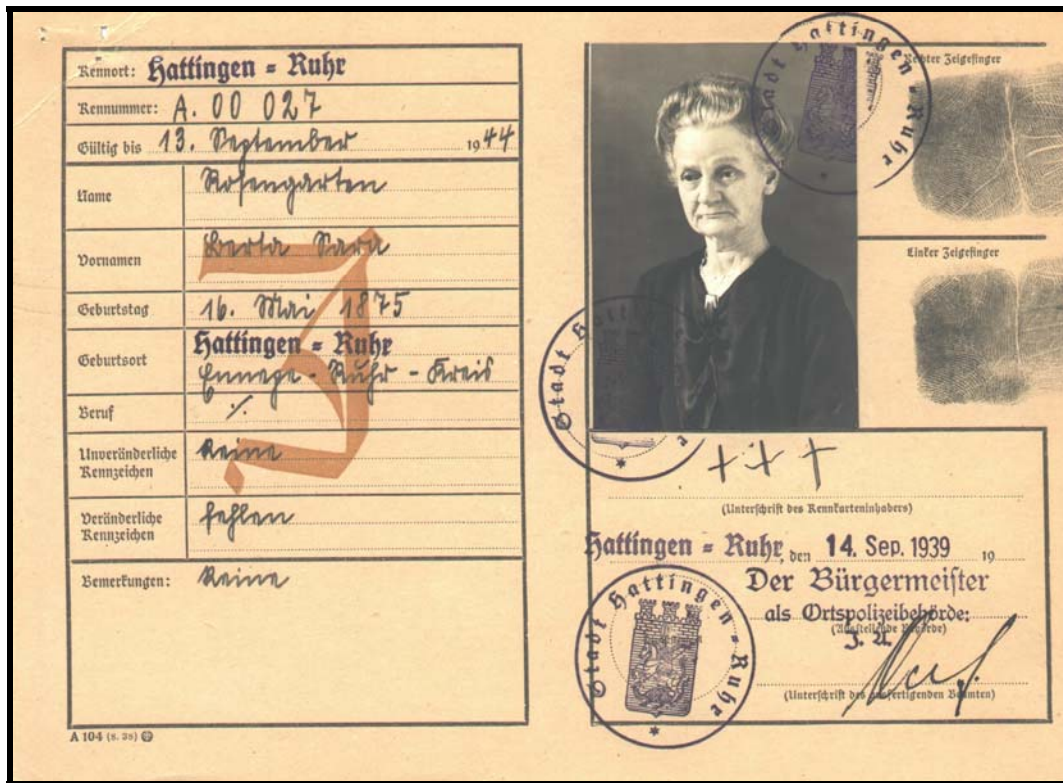 Kennort: Hattingen = Ruhr
Kennummer: A. 00 027
Gültig bis 13. September 1944
Name Rosengarten
Vornamen Berta Sara
J
Geburtstag 16. Mai 1875
Geburtsort Hattingen = Ruhr
Ennepe - Ruhr - Kreis
Beruf ./.
Unveränderliche Kennzeichen Keine
Veränderliche Kennzeichen fehlen
Bemerkungen: Keine
A 104 (8. 38)
Stadt Hattingen - Ruhr
Rechter Zeigefinger
Linker Zeigefinger
Stadt Hatt
+++
(Unterschrift des Kennkarteninhabers)
Hattingen = Ruhr, den 14. Sep. 1939 19
Der Bürgermeister
als Ortspolizeibehörde:
(Ausstellende Behörde)
J. A.
(Unterschrift des ausfertigenden Beamten)
Stadt Hattingen - Ruhr